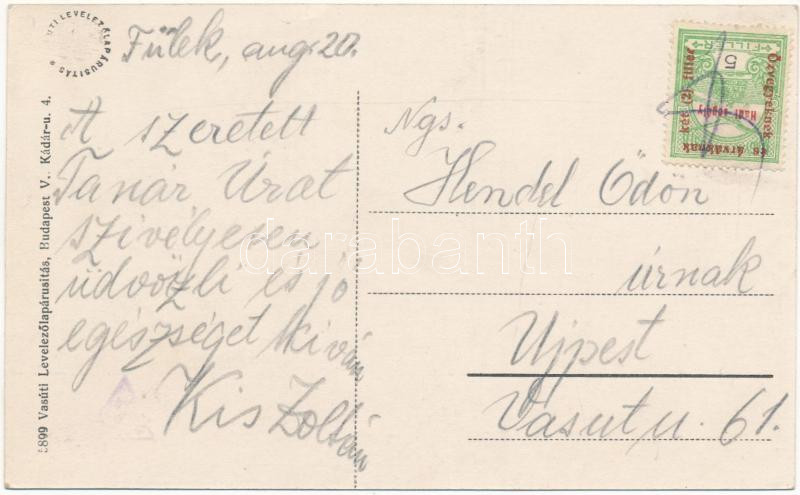 ÚTI LEVELEZŐLAPÁRUSITÁS
Fülek, aug. 20.
A szeretett
Tanár Úrat
szivélyesen
üdvözli és jó
egészséget kiván
Kis Zoltán
5899 Vasúti Levelezőlapárusitás, Budapest V., Kádár-u. 4.
FILLÉR
5
Özvegyeknek
és árváknak
két (2) fillér
Hadi segély
Ngs.
Hendel Ödön
úrnak
Ujpest
Vasut u. 61.
darabanth